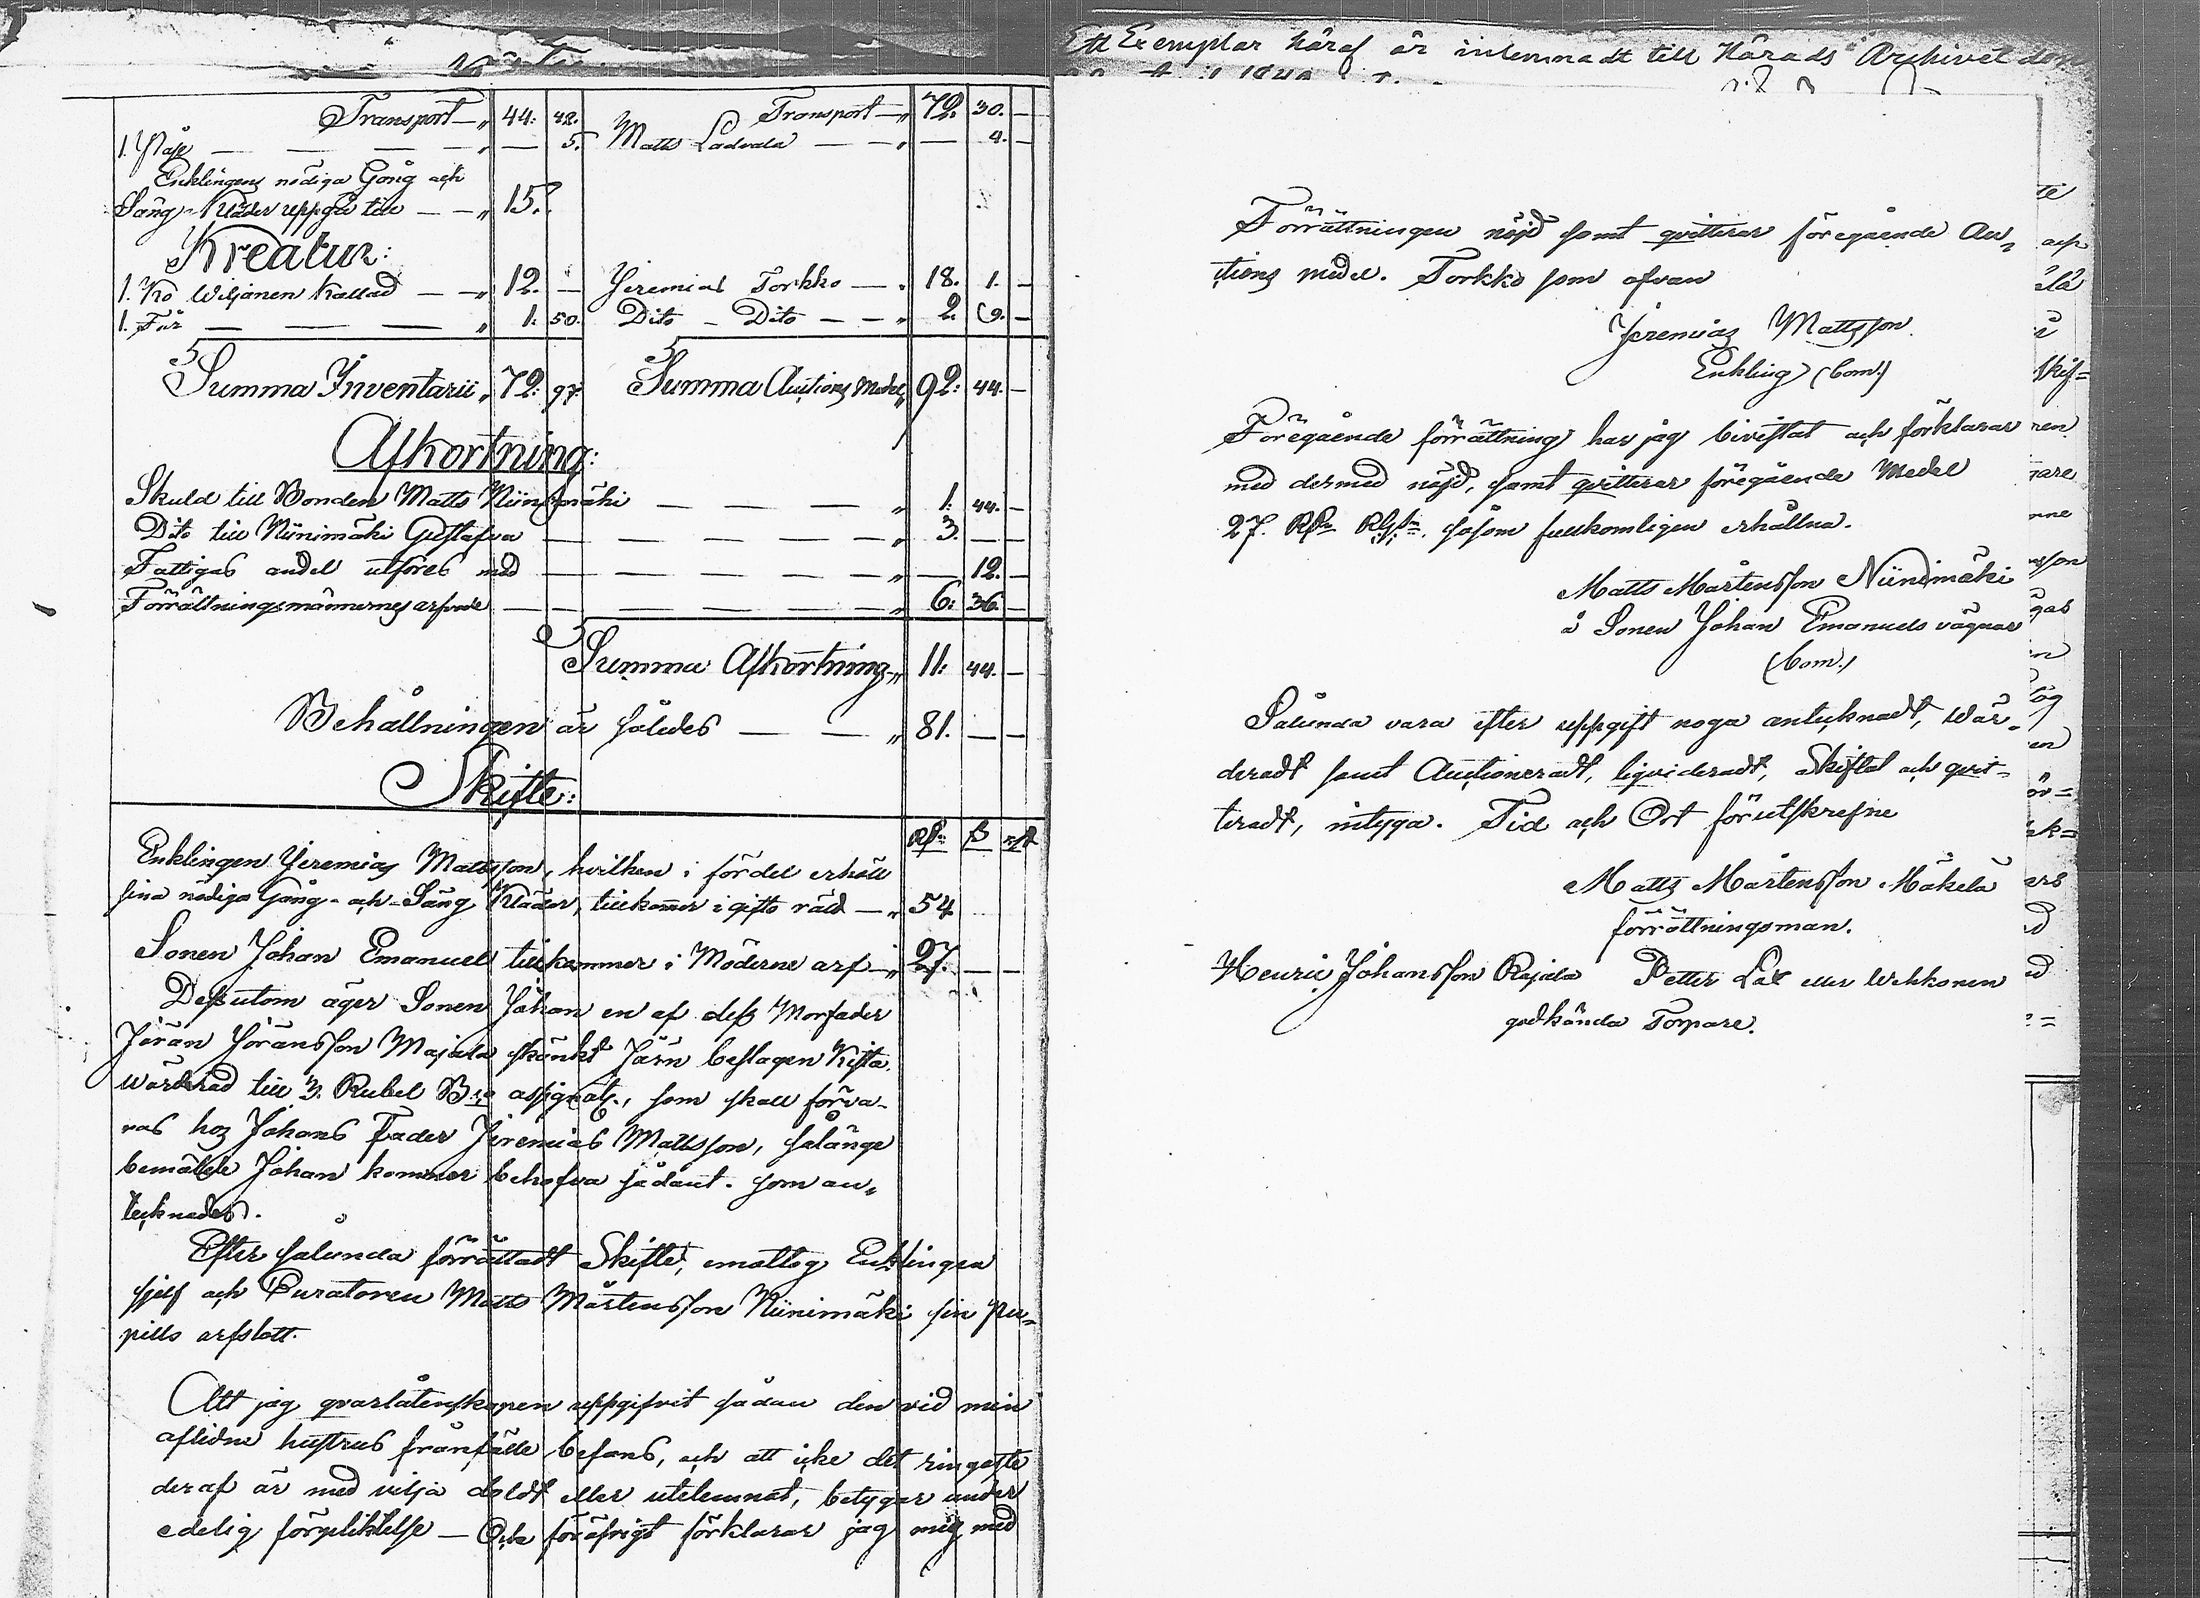 Transport 44. 42. Transport 72. 30. —
1. Påse — — — — 5. Matts Ladvala — — — 4. —
Enklingens nödiga Gång och
Säng-Kläder uppgå till — — 15.
Kreatur:
1. Ko Wiljanen Kallad — — 12. — Jeremias Torkko — 18. 1. —
1. Får — — — 1. 50. Dito — Dito — — 2. 9. —
Summa Inventarii 72. 97. Summa Auctions Medel 92. 44. —
Afkortning:
Skuld till Bonden Matts Niinimäki — — — — 1. 44. —
Dito till Niinimäki Gustafva — — — — 3. — —
Fattigas andel utföres med — — — — — 12. —
Förrättningsmännernes arfvode — — — — — 6. 36. —
Summa Afkortning 11. 44. —
Behållningen är således — — 81. — —
Skifte:
Enklingen Jeremias Mattsson, hvilken i fördel erhöll
sina nödiga Gång- och Säng Kläder, tillkommer i gifto rätt — 54
Sonen Johan Emanuel tillkommer i Möderne arf — 27. — —
Dessutom äger Sonen Johan en af dess Morfader
Jöran Jöransson Majala skänkt Järn beslagen Kista
wärderad till 3. Rubel B:co assignats., som skall förva-
ras hos Johans Fader Jeremias Mattsson, så länge
bemälde Johan kommer behöfva sådant. som an-
tecknades.
Efter sålunda förrättadt Skifte, emottog Enklingen
sjelf och Curatoren Matts Mårtensson Niinimäki sin Pu-
pills arfslott.
Att jag qvarlåtenskapen uppgifvit sådan den vid min
aflidne hustrus frånfälle befans, och att icke det ringaste
deraf är med vilja doldt eller utelemnat, betygar under
edelig förpliktelse — Och föröfrigt förklarar jag mig med
Ett Exemplar häraf är inlemnadt till Härads Archivet den
Förrättningen nöjd samt qvitterar föregående Auc-
tions medel. Torkko som ofvan
Jeremias Mattsson
Enkling (bom.)
Föregående förrättning har jag bivistat och förklarar
med dermed nöjd, samt qvitterar föregående Medel
27. såsom fullkomligen erhållna.
Matts Mårtensson Niinimäki
å Sonen Johan Emanuels vägnar
(bom.)
Sålunda vara efter uppgift noga antecknadt, wär-
deradt samt Auctioneradt, liqvideradt, Skiftat och qvit-
teradt, intyga. Tid och Ort förutskrefne
Matts Mårtensson Mäkelä
förrättningsman.
Henric Johansson Rajala Petter Lax eller Wehkonen
godkända Torpare.